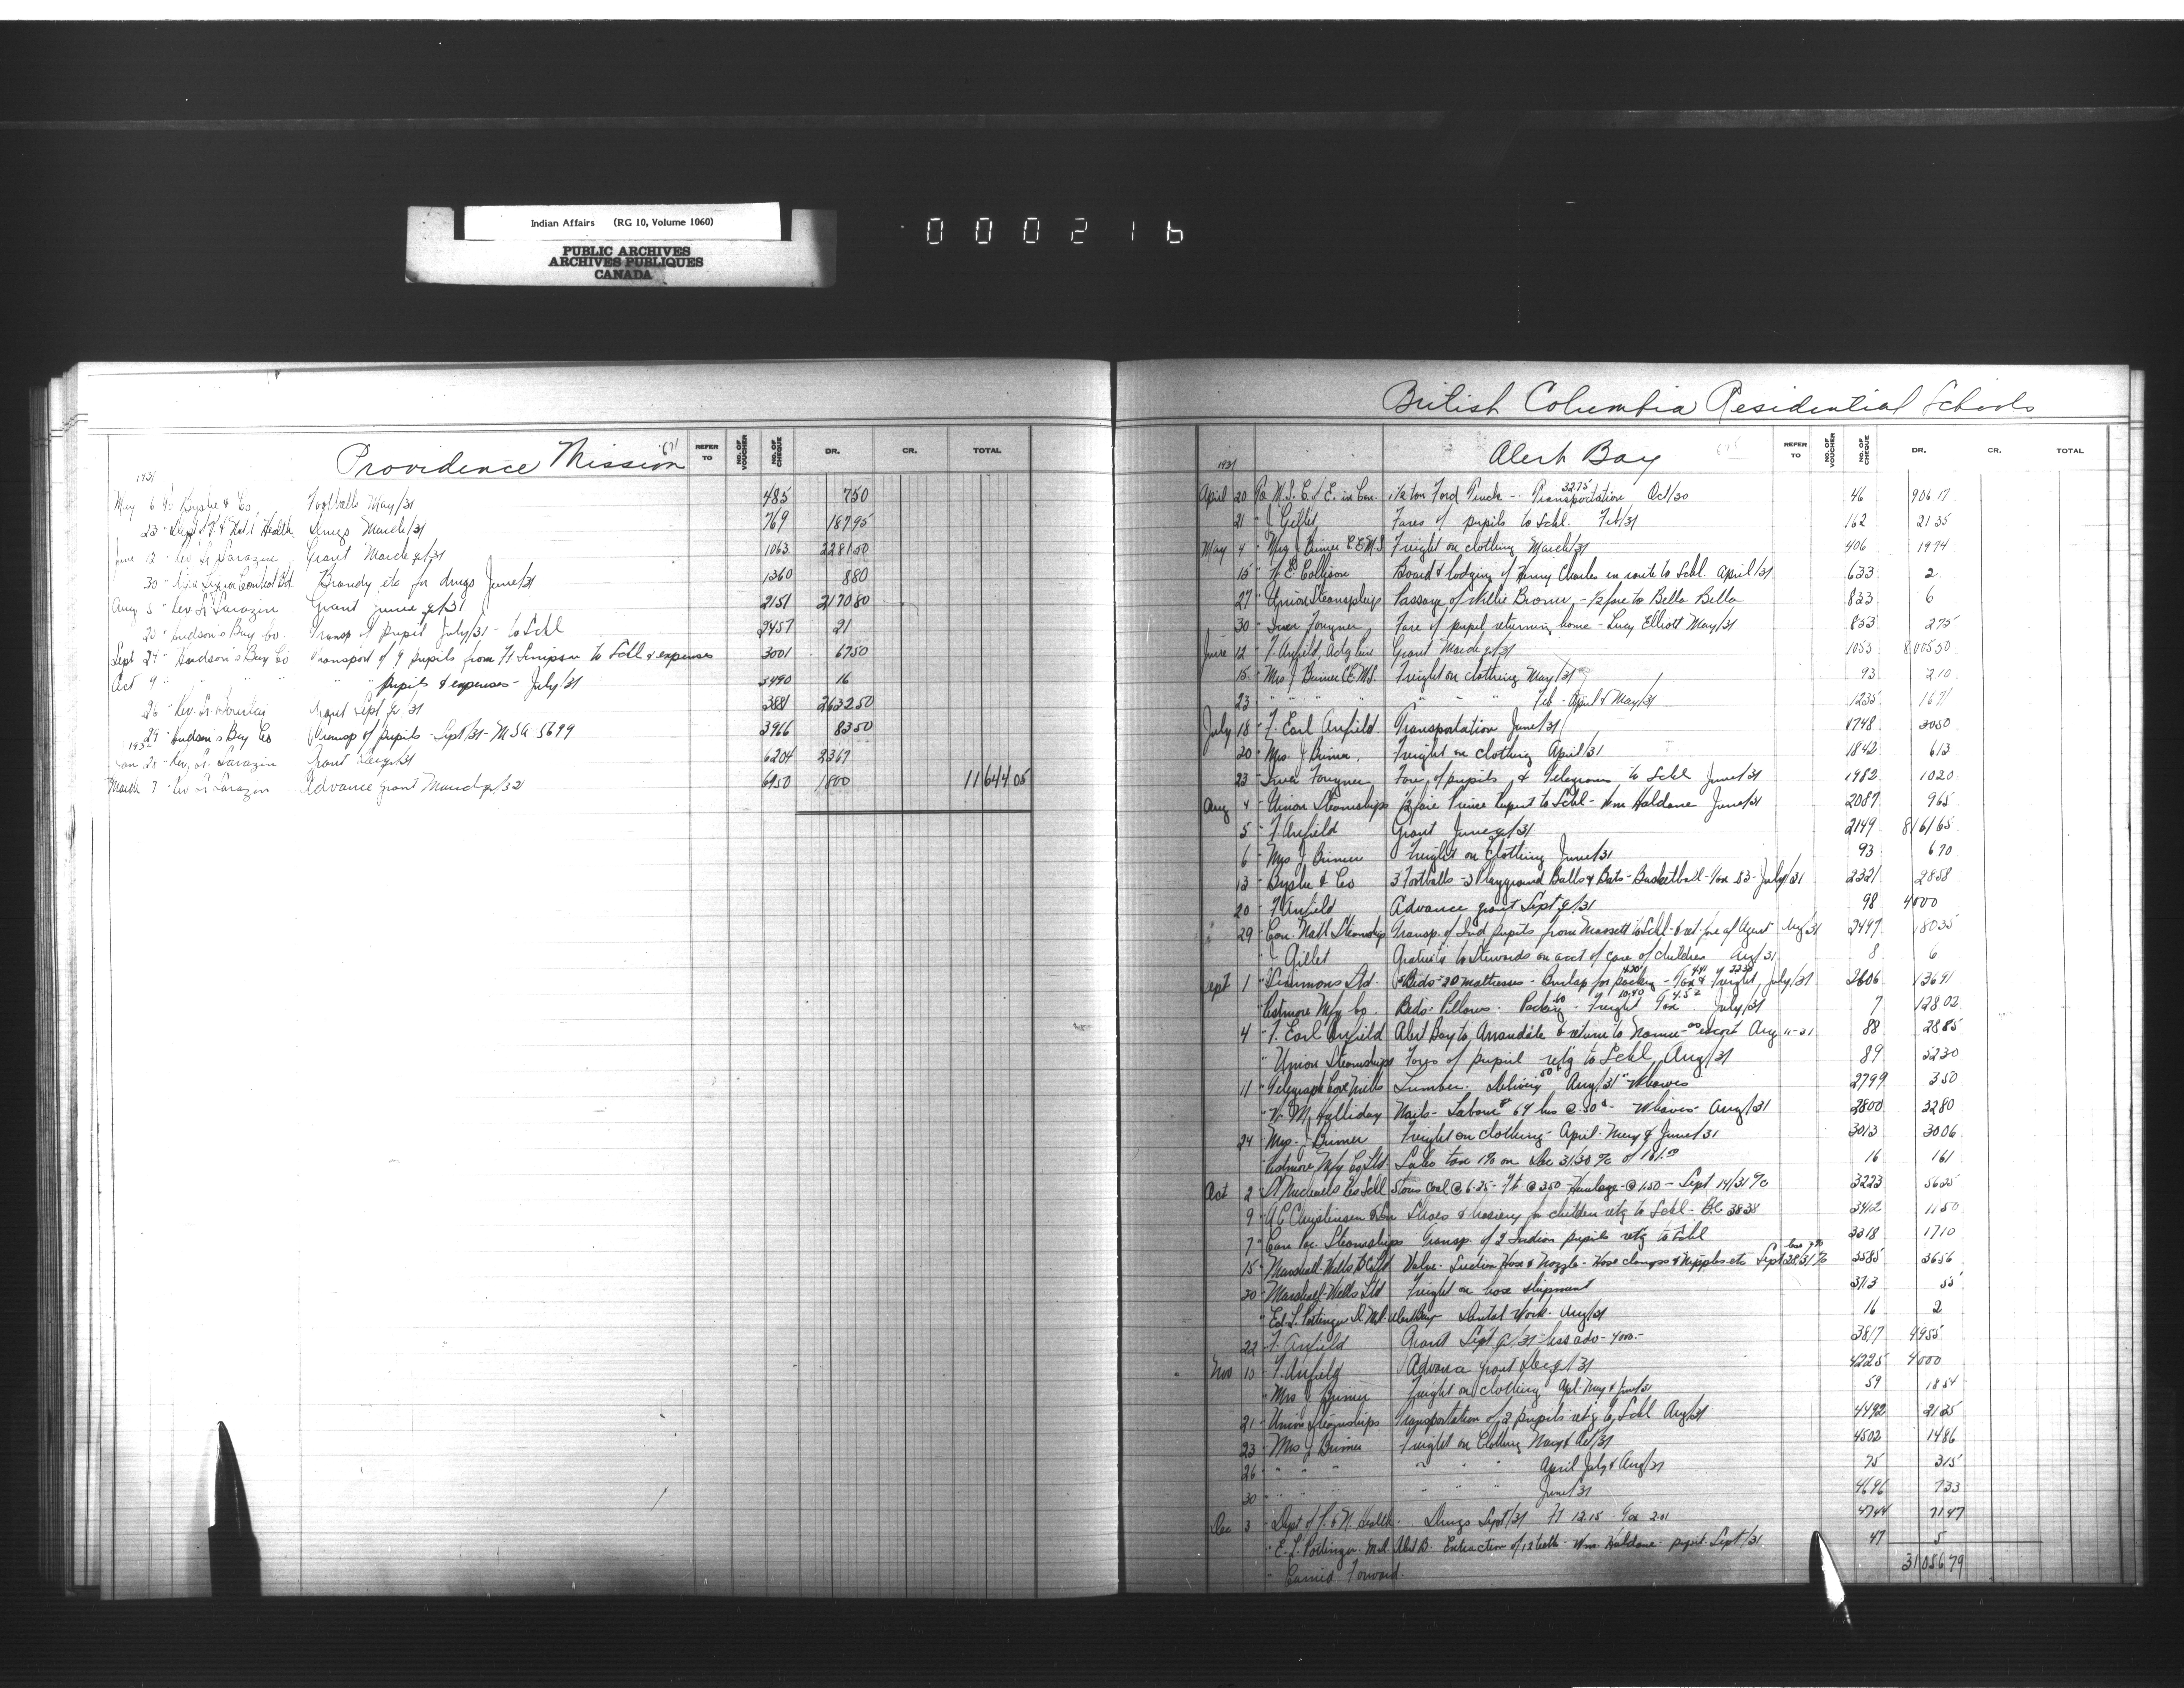 Indian Affairs (RG 10, Volume 1060)
PUBLIC ARCHIVES
ARCHIVES PUBLIQUES
CANADA
000216
Providence Mission
REFER TO NO. OF VOUCHER NO. OF CHEQUE DR. CR. TOTAL
1931
May 6 To Byshe & Co Footballs May/31 485 7 50
23 " Dept of P. & Nat'l Health Drugs March/31 769 187 95
June 12 " Rev. Sr Sarazin Grant March q/31 1063 2281 50
30 " Liquor Control Bd Brandy etc for drugs June/31 1360 8 80
Aug 5 " Rev Sr Sarazin Grant June q/31 2151 2170 80
20 " Hudson's Bay Co. Transp of pupil July/31 - to Schl 2457 21
Sept 24 " Hudson's Bay Co Transport of 9 pupils from Ft Simpson to Schl & expenses 3001 67 50
Oct 9 " " " " " " pupils & expenses - July/31 3490 16
26 " Rev. Sr Grant Sept q/31 2632 50
29 " Hudson's Bay Co Transp of pupils - Sept/31 - 5699 3966 83 50
1932
Jan 20 " Rev. Sr. Sarazin Grant Dec q/31 6204 2367
March 7 " Rev Sr Sarazin Advance grant March q/32 6950 1800 11644 05
British Columbia Residential Schools
Alert Bay
REFER TO NO. OF VOUCHER NO. OF CHEQUE DR. CR. TOTAL
1931
April 20 To 1½ ton Ford Truck - Transportation 32.75 Oct/30 46 906 17
21 " J Gillet Fares of pupils to Schl. Feb/31 162 21 35
May 4 " Mrs J Brimer Freight on clothing March/31 406 19 74
15 " W. E. Collison Board & lodging of Henry Charles en route to Schl. April/31 633 2
27 " Union Steamships Passage of Willie Brown - ½ fare to Bella Bella 823 6
30 " Iver Fougner Fare of pupil returning home - Lucy Elliott May/31 855 2 75
June 12 " F. Anfield, Actg Prin Grant March q/31 1053 8005 50
15 " Mrs J Brimer Freight on clothing May/31 93 2 10
23 " " " " " " " Feb - April & May/31 1235 16 71
July 18 " F. Earl Anfield Transportation June/31 1748 20 50
20 " Mrs. J Brimer Freight on clothing April/31 1842 6 13
23 " Iver Fougner Fares of pupils & Telegrams to Schl June/31 1982 10 20
Aug 4 " Union Steamships ½ fare Prince Rupert to Schl - Wm Haldane June/31 2087 9 65
5 " F. Anfield Grant June q/31 2149 8161 65
6 " Mrs J Brimer Freight on Clothing June/31 93 6 70
13 " Byshe & Co 3 Footballs - 3 Playground Balls & Bats - Basketball - Tax 83 - July/31 2321 28 58
20 " F. Anfield Advance grant Sept q/31 98 4000
29 " Can. Nat'l Steamship Transp. of Ind pupils from Massett to Schl & ret. fare of Agent Aug/31 2447 180 35
" J Gillet Gratuity to Stewards on acct of care of children Aug/31 8 6
Sept 1 " Simmons Ltd. Beds - 20 mattresses - Burlap for packing - Tax & Freight, July/31 2606 136 91
Restmore Mfg Co. Beds - Pillows - Packing - Freight 10.40 Tax 4.52 July/31 7 128 02
4 " F. Earl Anfield Alert Bay to Arrandale & return to Namu as escort Aug 11-31 88 28 85
" Union Steamships Fares of pupil ret'g to Schl Aug/31 89 52 30
11 " Telegraph Cove Mills Lumber. Delivery 50 Aug/31 2799 3 50
" W. M. Halliday Nails - Labour 64 hrs @ 50¢ - Aug/31 2800 32 80
24 " Mrs. J Brimer Freight on clothing - April - May & June/31 3013 30 06
Restmore Mfg Co Ltd. Sales tax 1% on Dec 31/30 a/c of 161.00 16 1 61
Oct 2 " St Michaels Res Schl 5 tons Coal @ 6.25 - Ft @ 3.50 - Haulage @ 1.50 - Sept 14/31 a/c 3223 56 25
9 " A C Christensen & Son Shoes & hosiery for children ret'g to Schl - B.C 3838 3412 11 50
7 " Can Pac. Steamships Transp. of 2 Indian pupils ret'g to Schl 3318 17 10
15 " Marshall-Wells B C Ltd Valve - Suction Hose & Nozzle - Hose clamps & Nipples etc Sept 28/31 a/c 3585 36 56
20 " Marshall-Wells Ltd Freight on hose shipment 3713 55
" Ed. L. Pottinger D M D Alert Bay Dental Work - Aug/31 16 2
22 " F. Anfield Grant Sept q/31 less adv - 4000 - 3817 4955
Nov 10 " F. Anfield Advance grant Dec q/31 4225 4000
" Mrs J Brimer Freight on clothing Apl - May & June/31 59 18 54
21 " Union Steamships Transportation of 2 pupils ret'g to Schl Aug/31 4492 21 35
23 " Mrs J Brimer Freight on Clothing & Oct/31 4502 14 86
26 " " " " " " April July & Aug/31 75 3 15
30 " " " " " " June/31 4696 7 33
Dec 3 " Dept of P. & N. Health Drugs Sept/31 Ft 12.15 Tax 2.01 4744 71 47
" E. L. Pottinger Alert B. Extraction of 12 teeth - Wm. Haldane - pupil Sept/31 47 5
" Carried Forward. 31056 79